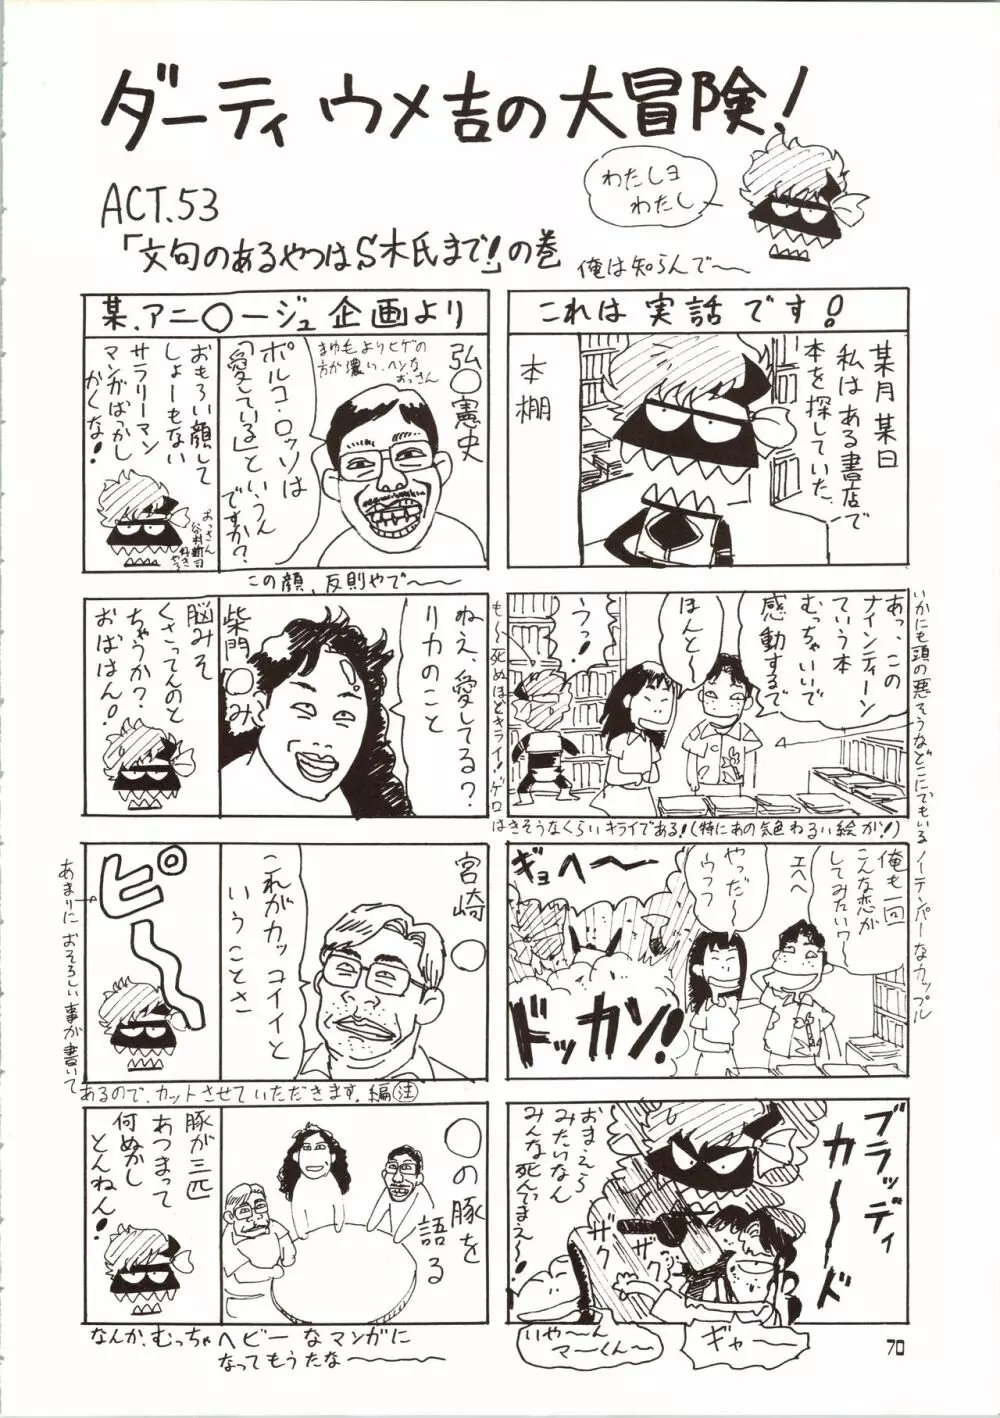 ダーティウメ吉の大冒険!
わたしヨ
わたし
ACT.53
「文句のあるやつはS木氏まで!」の巻
俺は知らんで〜〜
これは実話です!
某月某日
私はある書店で
本を探していた
本棚
あっ、この
ナインティーン
ていう本
むっちゃいいで
感動するで
ほんと〜
うっ!
いかにも頭の悪そうなどこにでもいるノーテンパーなカップル
も〜〜死ぬほどキライ!ゲロ
はきそうなくらいキライである!(特にあの気色わるい絵が!)
俺も一回
こんな恋が
してみたいワー
エヘヘ
やっだ〜
ウフフ
ギョヘ〜〜
ドッカン!
ブラッディ
カ〜〜ド
おまえら
みたいなん
みんな死んでまえ〜!
ザク
ザク
いや〜ん
マーくん〜
ギャー
某.アニ○ージュ企画より
弘○憲史
まゆ毛よりヒゲの
方が濃い、ヘンな
おっさん
ポルコ・ロッソは
「愛している」というん
ですか?
おもろい顔して
しょーもない
サラリーマン
マンガばっかし
かくな!
おっさん
谷村新司
好き
やろ
この顔、反則やで〜〜
柴門○み
ねえ、愛してる?
リカのこと
脳みそ
くさってんのと
ちゃうか?
おばはん!
宮崎○
これがカッコイイと
いうことさ
ピ〜〜
あまりにおそろしい事が書いて
あるので、カットさせていただきます。編注
○の豚を
語る
豚が三匹
あつまって
何ぬかし
とんねん!
なんか、むっちゃヘビーなマンガに
なってもうたな〜〜
70